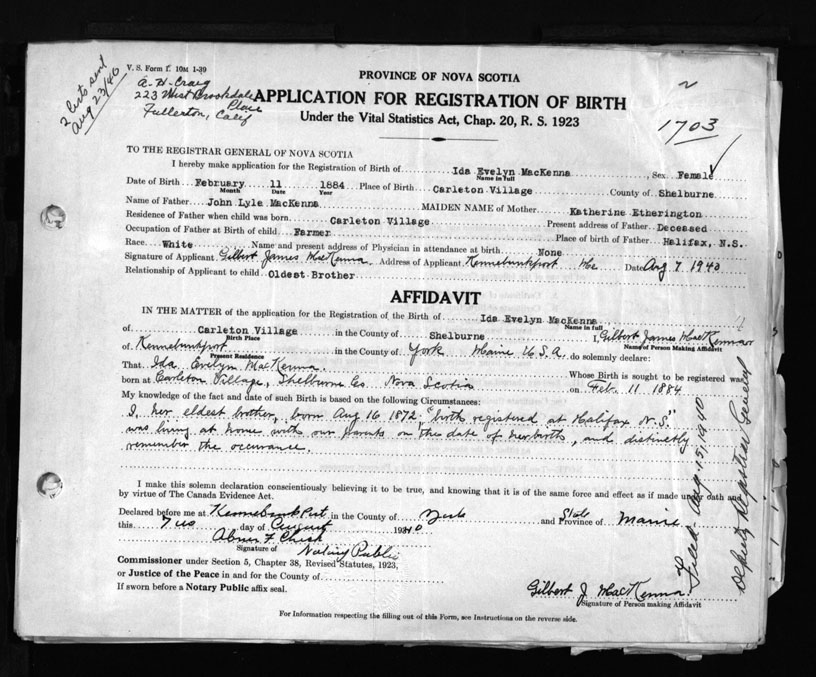 2 certs sent
Aug 23/40
V. S. Form I. 10M 1-39
A-H-Craig
223 West Brookdale
Place
Fullerton, Calif
PROVINCE OF NOVA SCOTIA
APPLICATION FOR REGISTRATION OF BIRTH
Under the Vital Statistics Act, Chap. 20, R. S. 1923
1703
TO THE REGISTRAR GENERAL OF NOVA SCOTIA
I hereby make application for the Registration of Birth of Ida Evelyn MacKenna, Sex Female
Name in full
Date of Birth February 11 1884 Place of Birth Carleton Village County of Shelburne
Month Date Year
Name of Father John Lyle MacKenna MAIDEN NAME of Mother Katherine Etherington
Residence of Father when child was born Carleton Village Present address of Father Deceased
Occupation of Father at Birth of child Farmer Place of birth of Father Halifax, N.S.
Race White Name and present address of Physician in attendance at birth None
Signature of Applicant Gilbert James MacKenna Address of Applicant Kennebunkport Me. Date Aug 7 1940
Relationship of Applicant to child Oldest Brother
AFFIDAVIT
IN THE MATTER of the application for the Registration of the Birth of Ida Evelyn MacKenna
Name in full
of Carleton Village in the County of Shelburne I, Gilbert James MacKenna
Birth Place Name of Person Making Affidavit
of Kennebunkport in the County of York Maine U.S.A. do solemnly declare:
Present Residence
That Ida Evelyn MacKenna Whose Birth is sought to be registered was
born at Carleton Village, Shelburne Co Nova Scotia on Feb 11 1884
My knowledge of the fact and date of such Birth is based on the following Circumstances:
I, her eldest brother, born Aug 16 1872 "birth registered at Halifax N.S."
was living at home with our parents on the date of her birth, and distinctly
remember the occurance.
I make this solemn declaration conscientiously believing it to be true, and knowing that it is of the same force and effect as if made under oath and
by virtue of The Canada Evidence Act.
Declared before me at Kennebunkport in the County of York and State Province of Maine
this 7 day of August 1940
Abner F Chick
Signature of Notary Public
Commissioner under Section 5, Chapter 38, Revised Statutes, 1923,
or Justice of the Peace in and for the County of
If sworn before a Notary Public affix seal.
Gilbert J. MacKenna
Signature of Person making Affidavit
For Information respecting the filling out of this Form, see Instructions on the reverse side.
Filed Aug. 15, 1940
Deputy Registrar General